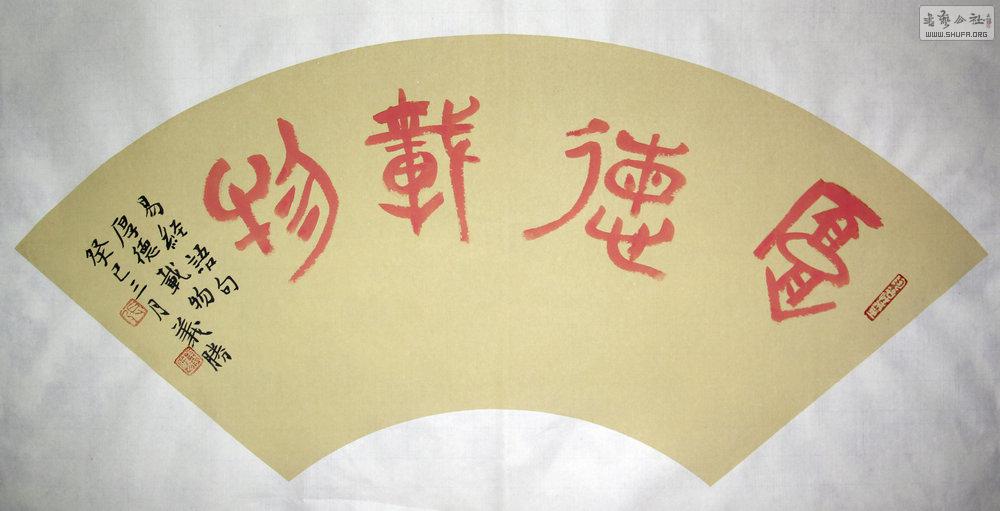 厚德載物
易經語句
厚德載物義勝
癸巳三月
書藝公社
WWW.SHUFA.ORG